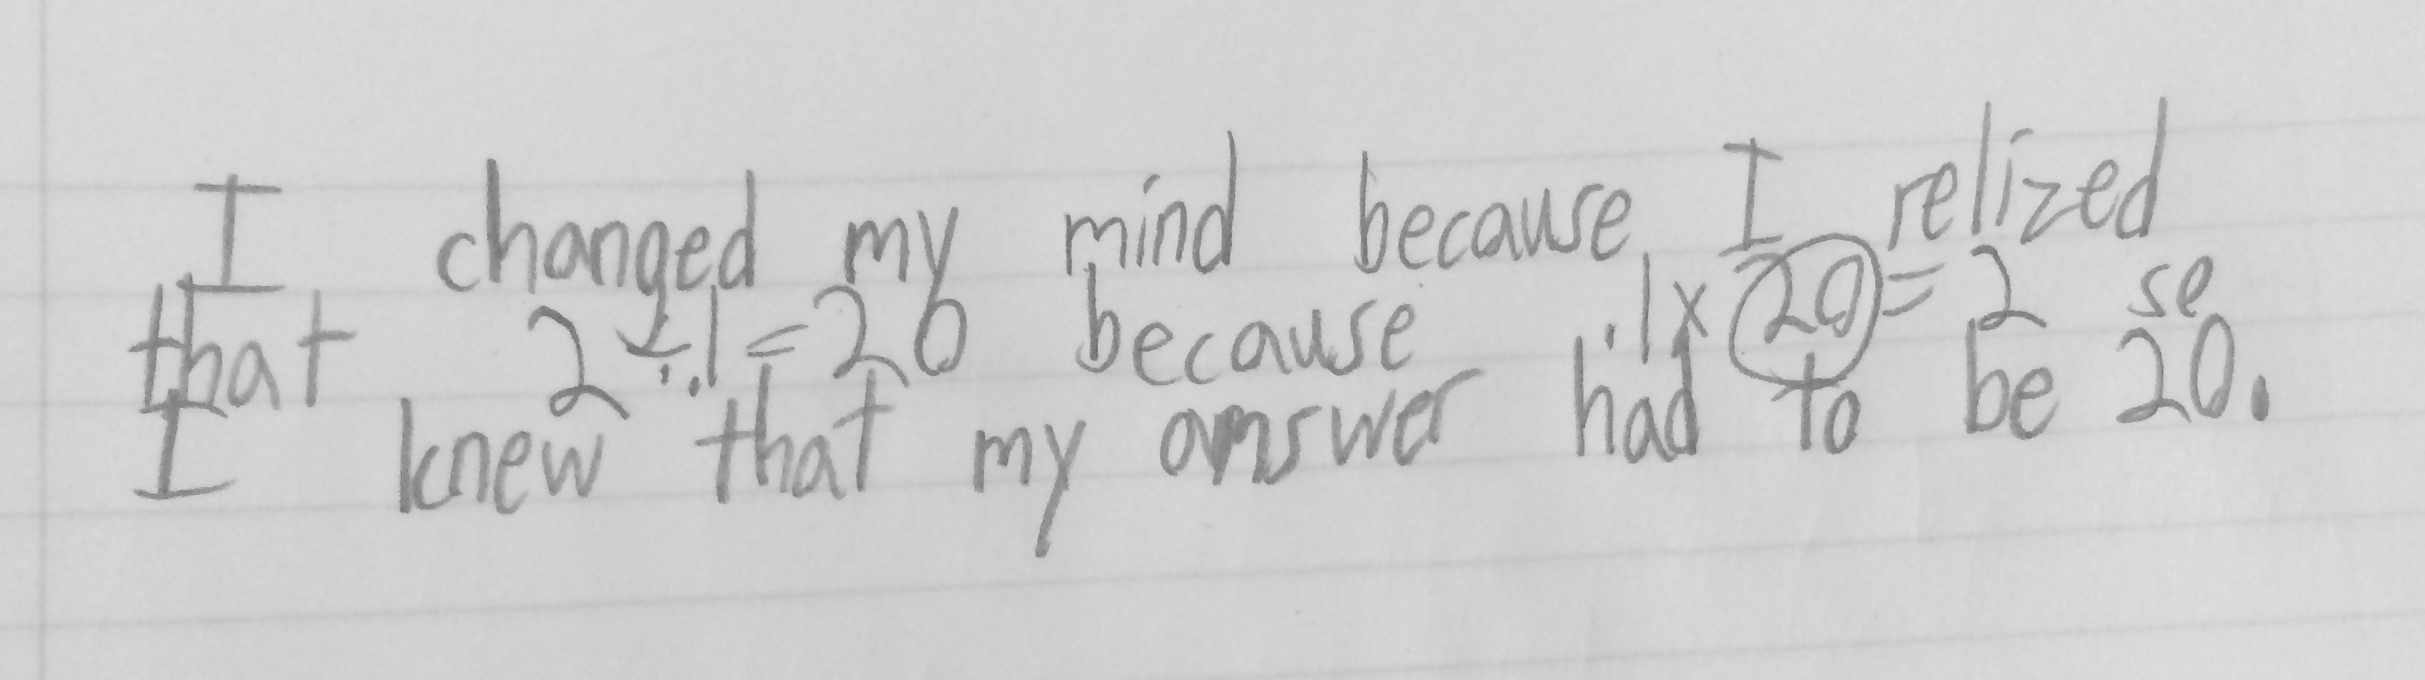 I changed my mind because I relized
that 2÷.1=20 because .1x20=2 so
I knew that my answer had to be 20.